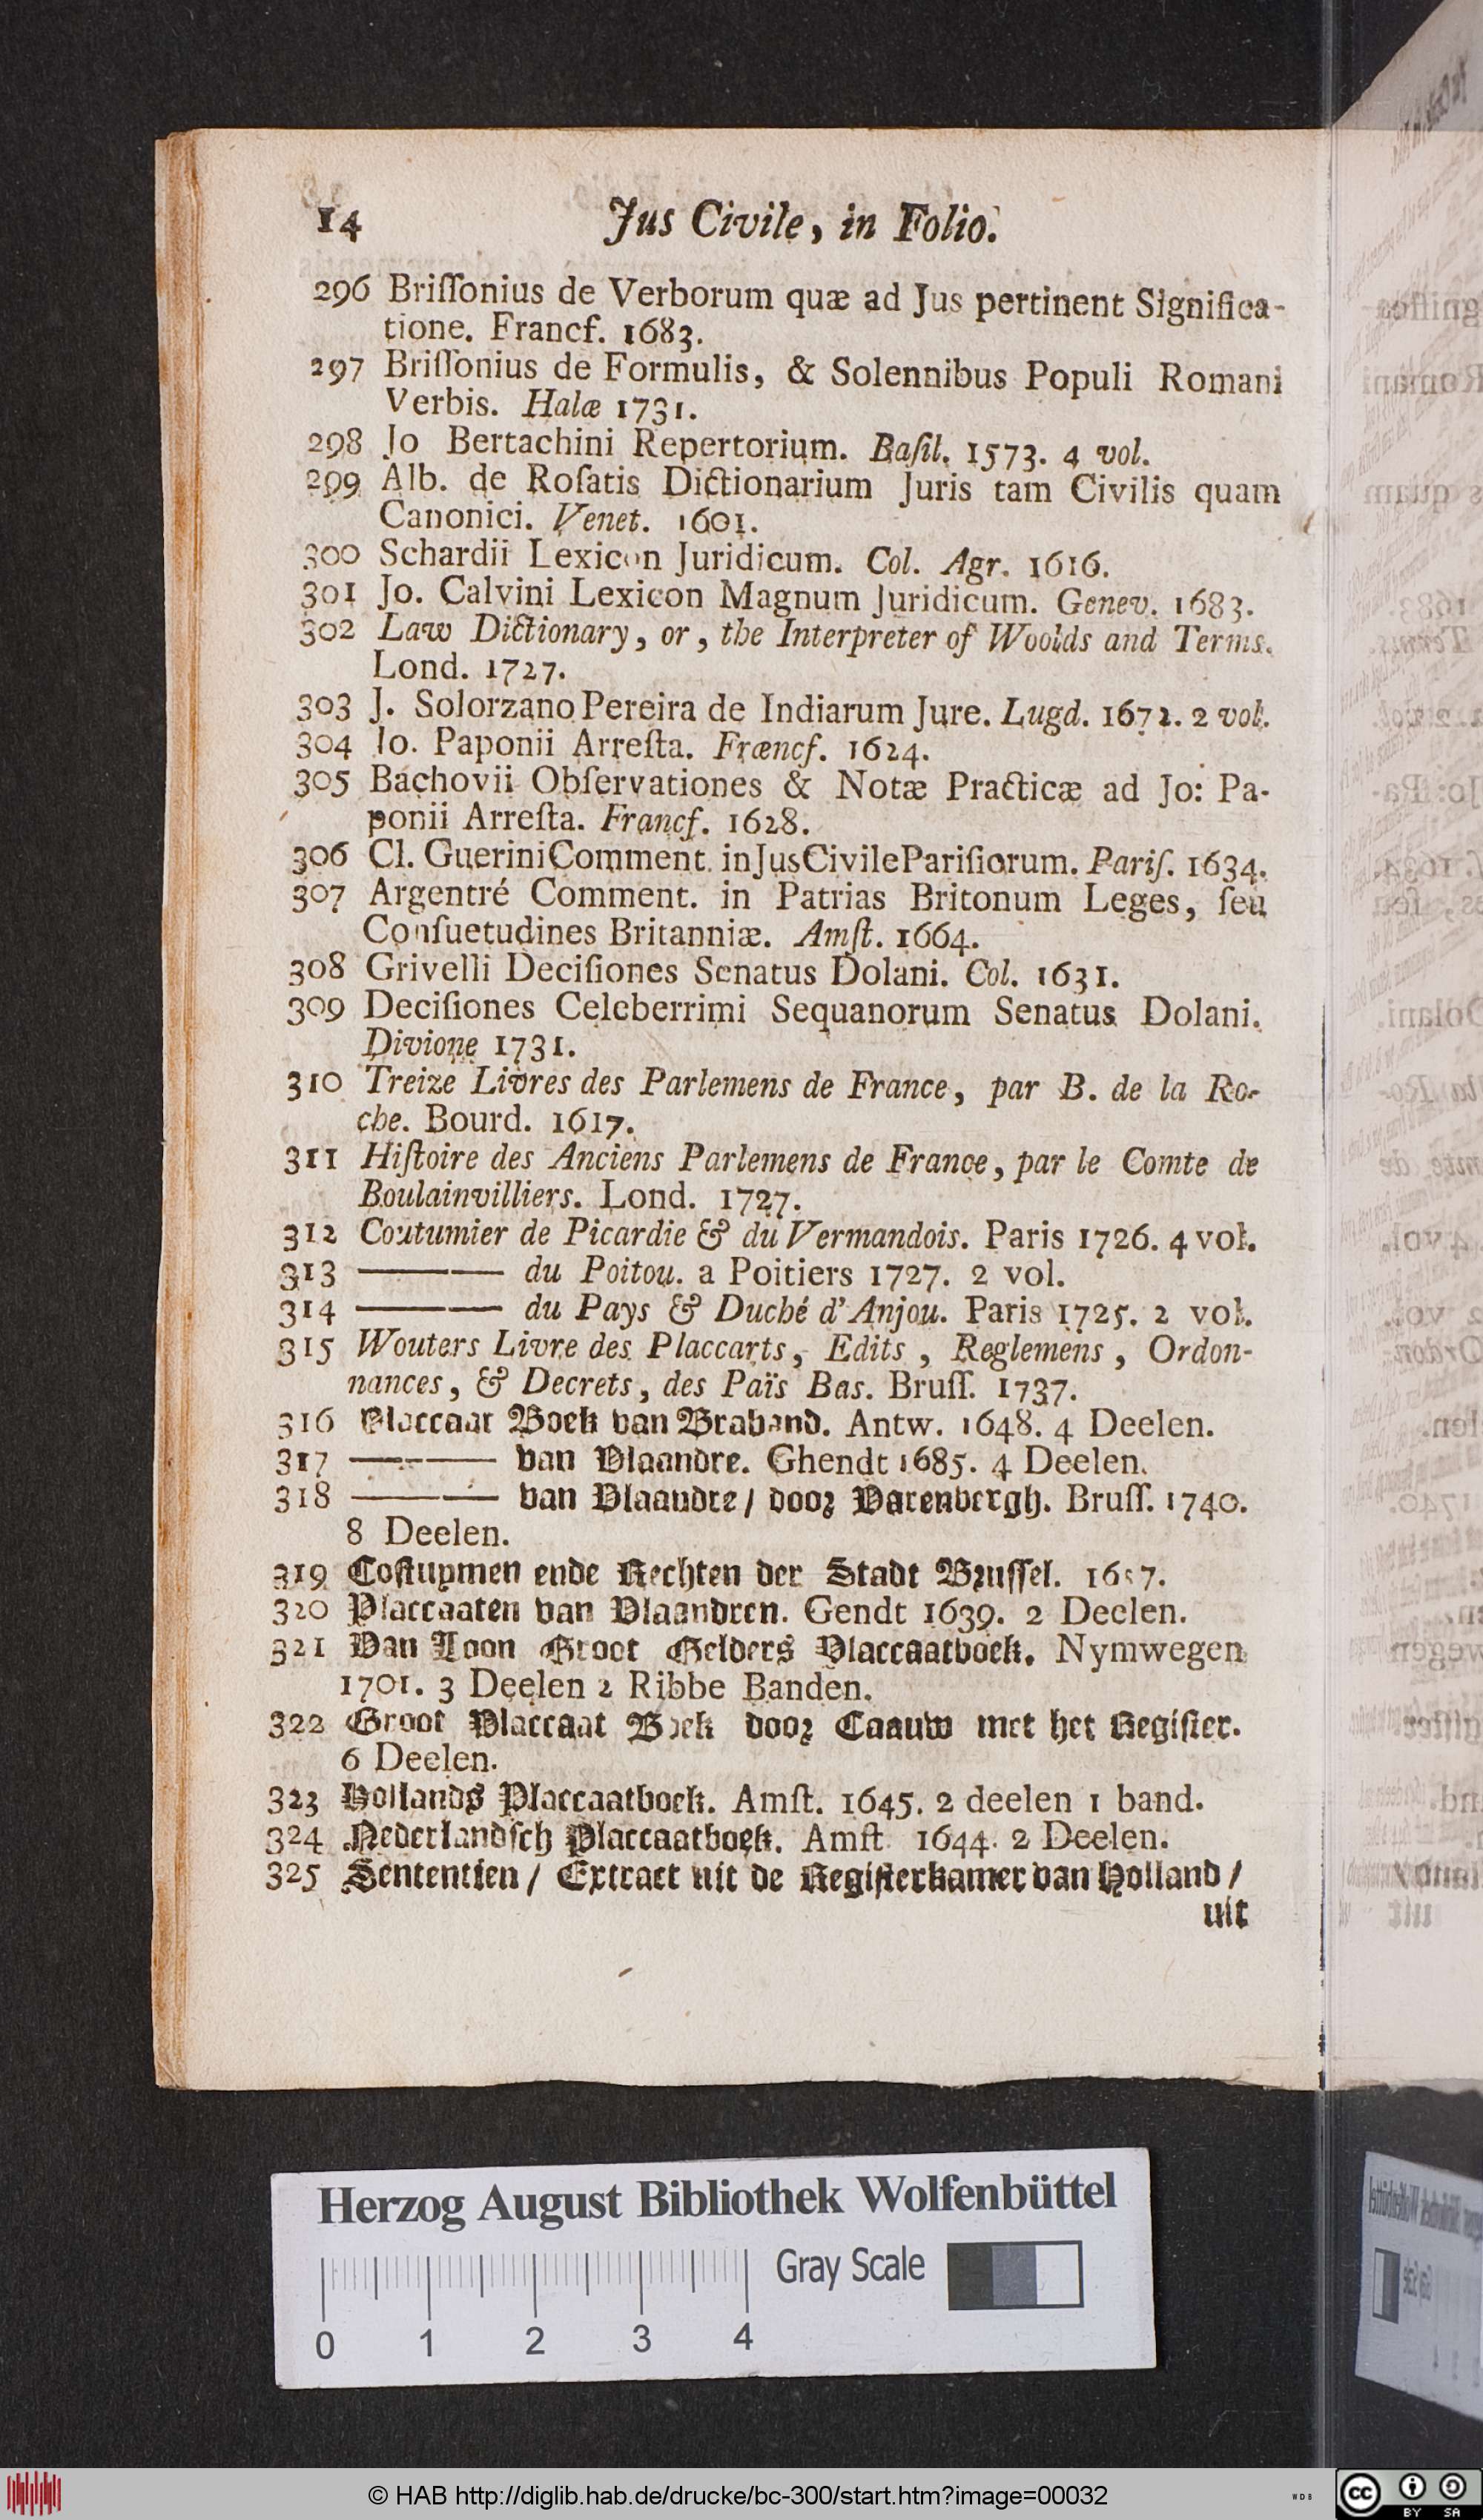 14 Jus Civile, in Folio.
296 Briſſonius de Verborum quæ ad Jus pertinent Significa-
tione. Francf. 1683.
297 Briſſonius de Formulis, & Solennibus Populi Romani
Verbis. Halæ 1731.
298 Jo Bertachini Repertorium. Baſil. 1573. 4 vol.
299 Alb. de Roſatis Dictionarium Juris tam Civilis quam
Canonici. Venet. 1601.
300 Schardii Lexicon Juridicum. Col. Agr. 1616.
301 Jo. Calvini Lexicon Magnum Juridicum. Genev. 1683.
302 Law Dictionary, or, the Interpreter of Woolds and Terms.
Lond. 1727.
303 J. Solorzano Pereira de Indiarum Jure. Lugd. 1672. 2 vol.
304 Jo. Paponii Arreſta. Fræncf. 1624.
305 Bachovii Obſervationes & Notæ Practicæ ad Jo: Pa-
ponii Arreſta. Francf. 1628.
306 Cl. Guerini Comment. in Jus Civile Pariſiorum. Pariſ. 1634.
307 Argentré Comment. in Patrias Britonum Leges, ſeu
Conſuetudines Britanniæ. Amſt. 1664.
308 Grivelli Deciſiones Senatus Dolani. Col. 1631.
309 Deciſiones Celeberrimi Sequanorum Senatus Dolani.
Divione 1731.
310 Treize Livres des Parlemens de France, par B. de la Ro-
che. Bourd. 1617.
311 Hiſtoire des Anciens Parlemens de France, par le Comte de
Boulainvilliers. Lond. 1727.
312 Coutumier de Picardie & du Vermandois. Paris 1726. 4 vol.
313 ——— du Poitou. a Poitiers 1727. 2 vol.
314 ——— du Pays & Duché d'Anjou. Paris 1725. 2 vol.
315 Wouters Livre des Placcarts, Edits, Reglemens, Ordon-
nances, & Decrets, des Païs Bas. Bruſſ. 1737.
316 Placcaat Boek van Braband. Antw. 1648. 4 Deelen.
317 ——— van Vlaandre. Ghendt 1685. 4 Deelen.
318 ——— van Vlaandre / door Varenbergh. Bruſſ. 1740.
8 Deelen.
319 Coſtuymen ende Rechten der Stadt Bruſſel. 1657.
320 Placcaaten van Vlaandren. Gendt 1639. 2 Deelen.
321 Van Loon Groot Gelders Placcaatboek. Nymwegen
1701. 3 Deelen 2 Ribbe Banden.
322 Groot Placcaat Boek door Caauw met het Regiſter.
6 Deelen.
323 Hollands Placcaatboek. Amſt. 1645. 2 deelen 1 band.
324 Nederlandſch Placcaatboek. Amſt. 1644. 2 Deelen.
325 Sententien / Extract uit de Regiſterkamer van Holland /
uit
Herzog August Bibliothek Wolfenbüttel
Gray Scale
0 1 2 3 4
© HAB http://diglib.hab.de/drucke/bc-300/start.htm?image=00032
WDB
cc BY SA